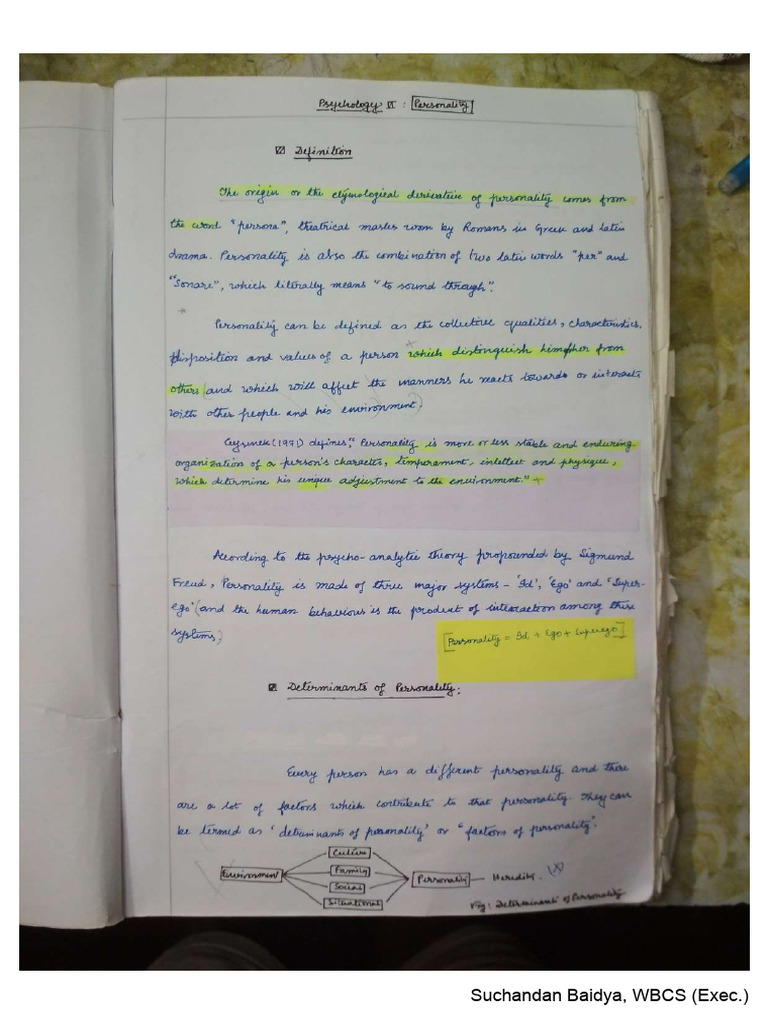 Psychology VI : Personality
Definition
The origin or the etymological derivative of personality comes from
the word "persona", theatrical masks worn by Romans in Greek and Latin
drama. Personality is also the combination of two latin words "per" and
"Sonare", which literally means "to sound through".
Personality can be defined as the collective qualities, characteristics,
disposition and values of a person which distinguish him/her from
others (and which will affect the manners he reacts towards or interacts
with other people and his environment)
Eysenck (1971) defines, "Personality is more or less stable and enduring
organization of a person's character, temperament, intellect and physique,
which determine his unique adjustment to the environment."
According to the psycho-analytic theory propounded by Sigmund
Freud, Personality is made of three major systems - 'Id', 'Ego' and 'Super-
ego' (and the human behaviour is the product of interaction among these
systems.)
[Personality = Id + Ego + Superego]
Determinants of Personality:
Every person has a different personality and there
are a lot of factors which contribute to that personality. They can
be termed as 'determinants of personality' or "factors of personality".
Culture
Family
Environment
Personality
Heredity.
Social
Situational
Fig: Determinants of Personality
Suchandan Baidya, WBCS (Exec.)